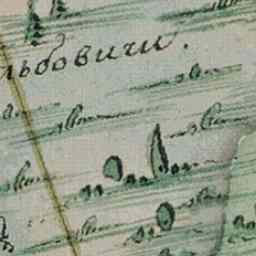 льбовичи.